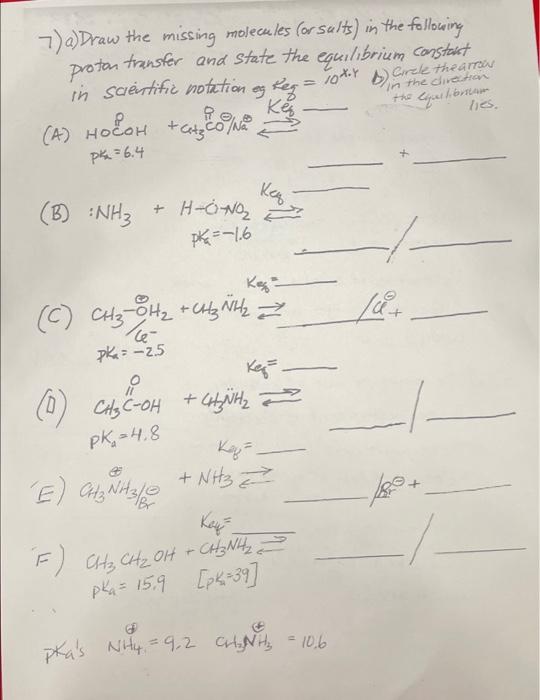 7) a) Draw the missing molecules (or salts) in the following
proton transfer and state the equilibrium constant
in scientific notation eg Keq = 10^X.Y b) Circle the arrow
in the direction
the equilibrium
lies.
Keq ____
(A) HOCOH + CH3CO⊖/Na⊕ ⇌ ____ + ____
O O
pKa = 6.4
Keq ____
(B) :NH3 + H-O-NO2 ⇌ ____ / ____
pKa = -1.6
Keq = ____
(C) CH3-OH2⊕ / Cl- + CH3NH2 ⇌ ____ /Cl⊖ + ____
pKa = -2.5
Keq = ____
(D) CH3C-OH + CH3NH2 ⇌ ____ / ____
O
pKa = 4.8
Keq = ____
E) CH3NH3⊕/Br⊖ + NH3 ⇌ ____ /Br⊖ + ____
Keq = ____
F) CH3CH2OH + CH3NH2 ⇌ ____ / ____
pKa = 15.9 [pKa=39]
pKa's NH4⊕ = 9.2 CH3NH3⊕ = 10.6